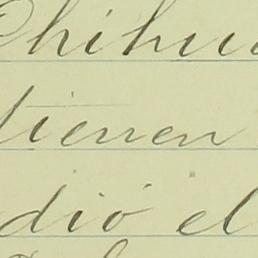 Chihua
tienen
dió el